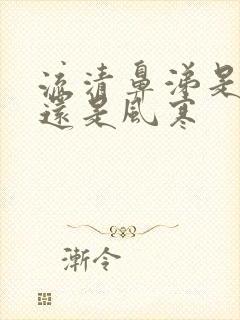 流清鼻涕是
還是風寒
漸令